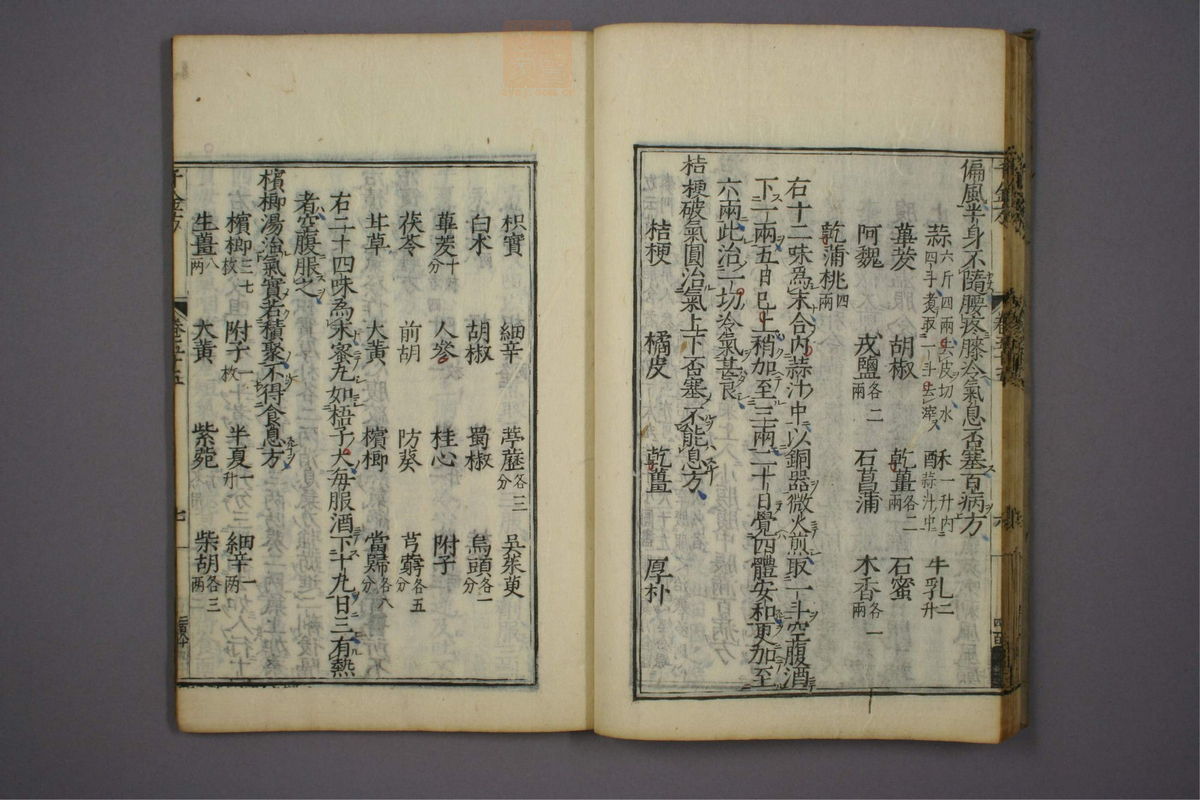 偏風半身不隨腰疼膝冷氣息否塞百病方
蒜六斤四兩去皮切水四斗煑取一斗去滓 酥一升内蒜汁中 牛乳二升
蓽茇 胡椒 乾薑各二兩 石蜜
阿魏 戎鹽各二兩 石菖蒲 木香各一兩
乾蒲桃四兩
右十二味為末合内蒜汁中以銅器微火煎取一斗空腹酒
下一兩五日已上稍加至三兩二十日覺四體安和更加至
六兩此治一切冷氣甚良
桔梗破氣圓治氣上下否塞不能息方
桔梗 橘皮 乾薑 厚朴
枳實 細辛 葶藶各三分 吳茱萸
白朮 胡椒 蜀椒 烏頭各一
蓽茇十分 人參 桂心 附子
茯苓 前胡 防葵 芎藭各五分
甘草 大黃 檳榔 當歸各八分
右二十四味為末蜜丸如梧子大每服酒下十丸日三有熱
者空腹服之
檳榔湯治氣實若積聚不得食息方
檳榔三七枚 附子一枚 半夏一升 細辛一兩
生薑八兩 大黃 紫菀 柴胡各三兩
千金方 卷五十五 七